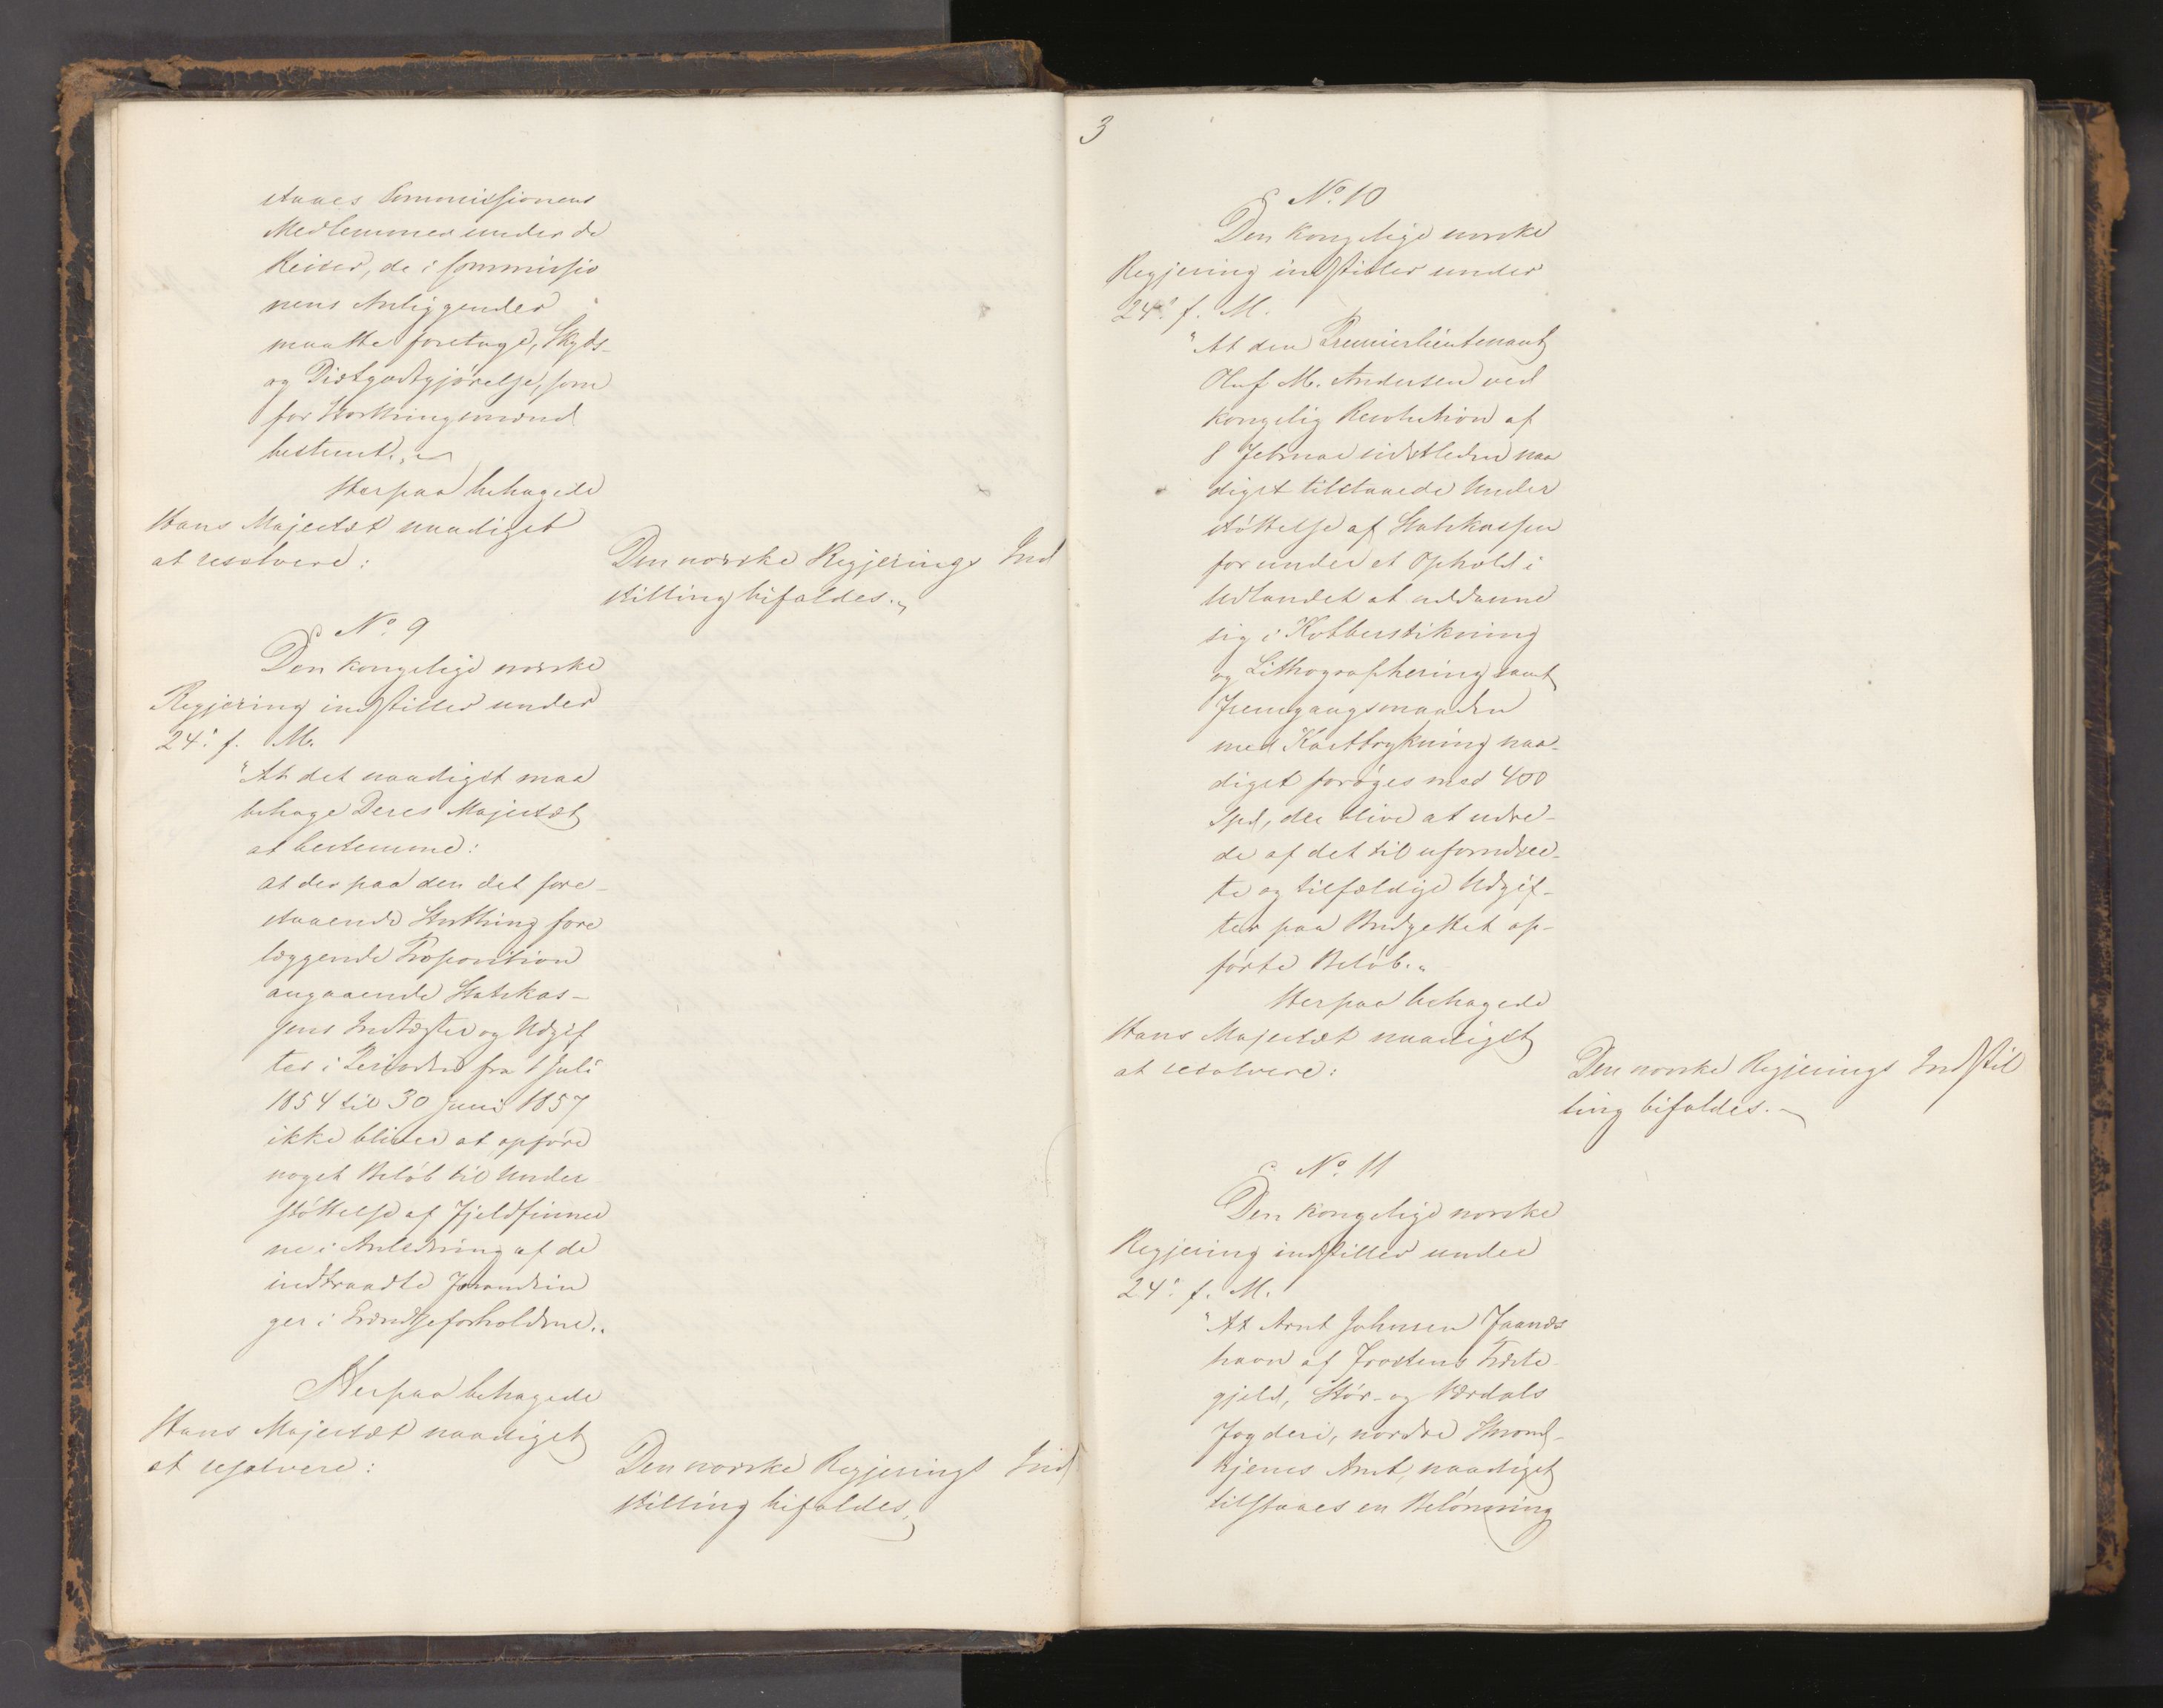 staaes Commissionens
Medlemmer under de
Reiser, de i Commissio
nens Anliggender
maatte foretage, Skyds-
og Diætgodtgjørelse, som
for Storthingsmænd
bestemt.„
Herpaa behagede
Hans Majestæt naadigst
at resolvere:
Den norske Regjerings Ind
stilling bifaldes.„
No. 9
Den kongelige norske
Regjering indstiller under
24. f. M.
"At det naadigst maa
behage Deres Majestæt
at bestemme:
at der paa den det fore-
staaende Storthing fore
læggende Proposition
angaaende Statskas-
sens Indtægter og Udgif
ter i Perioden fra 1 Juli
1854 til 30 Juni 1857
ikke bliver at opføre
noget Beløb til Under
støttelse af Fjeldfinner
ne i Anledning af de
indtraadte Forandrin
ger i Grændseforholdene.„
Herpaa behagede
Hans Majestæt naadigst
at resolvere:
Den norske Regjerings Ind
stilling bifaldes.„
3
No. 10
Den kongelige norske
Regjering indstiller under
24. f. M.
"At den Premierlieutenant
Oluf M. Andersen ved
kongelig Resolution af
8 Februar sidstleden naa
digst tilstaaede Under
støttelse af Statskassen
for under et Ophold i
Udlandet at uddanne
sig i Kobberstikning
og Lithographering samt
Fremgangsmaaden
med Karttrykning naa-
digst forøges med 400
Spd, der blive at udre-
de af det til uforudsee-
te og tilfældige Udgif-
ter paa Budgettet op-
førte Beløb.„
Herpaa behagede
Hans Majestæt naadigst
at resolvere:
Den norske Regjerings Indstil
ling bifaldes.
No. 11
Den kongelige norske
Regjering indstiller under
24. f. M.
"At Arnt Johnsen Faanes
havn af Frostens Præste-
gjeld, Stør- og Værdals
Fogderi, nordre Thrond-
hjems Amt, naadigst
tilstaaes en Belønning